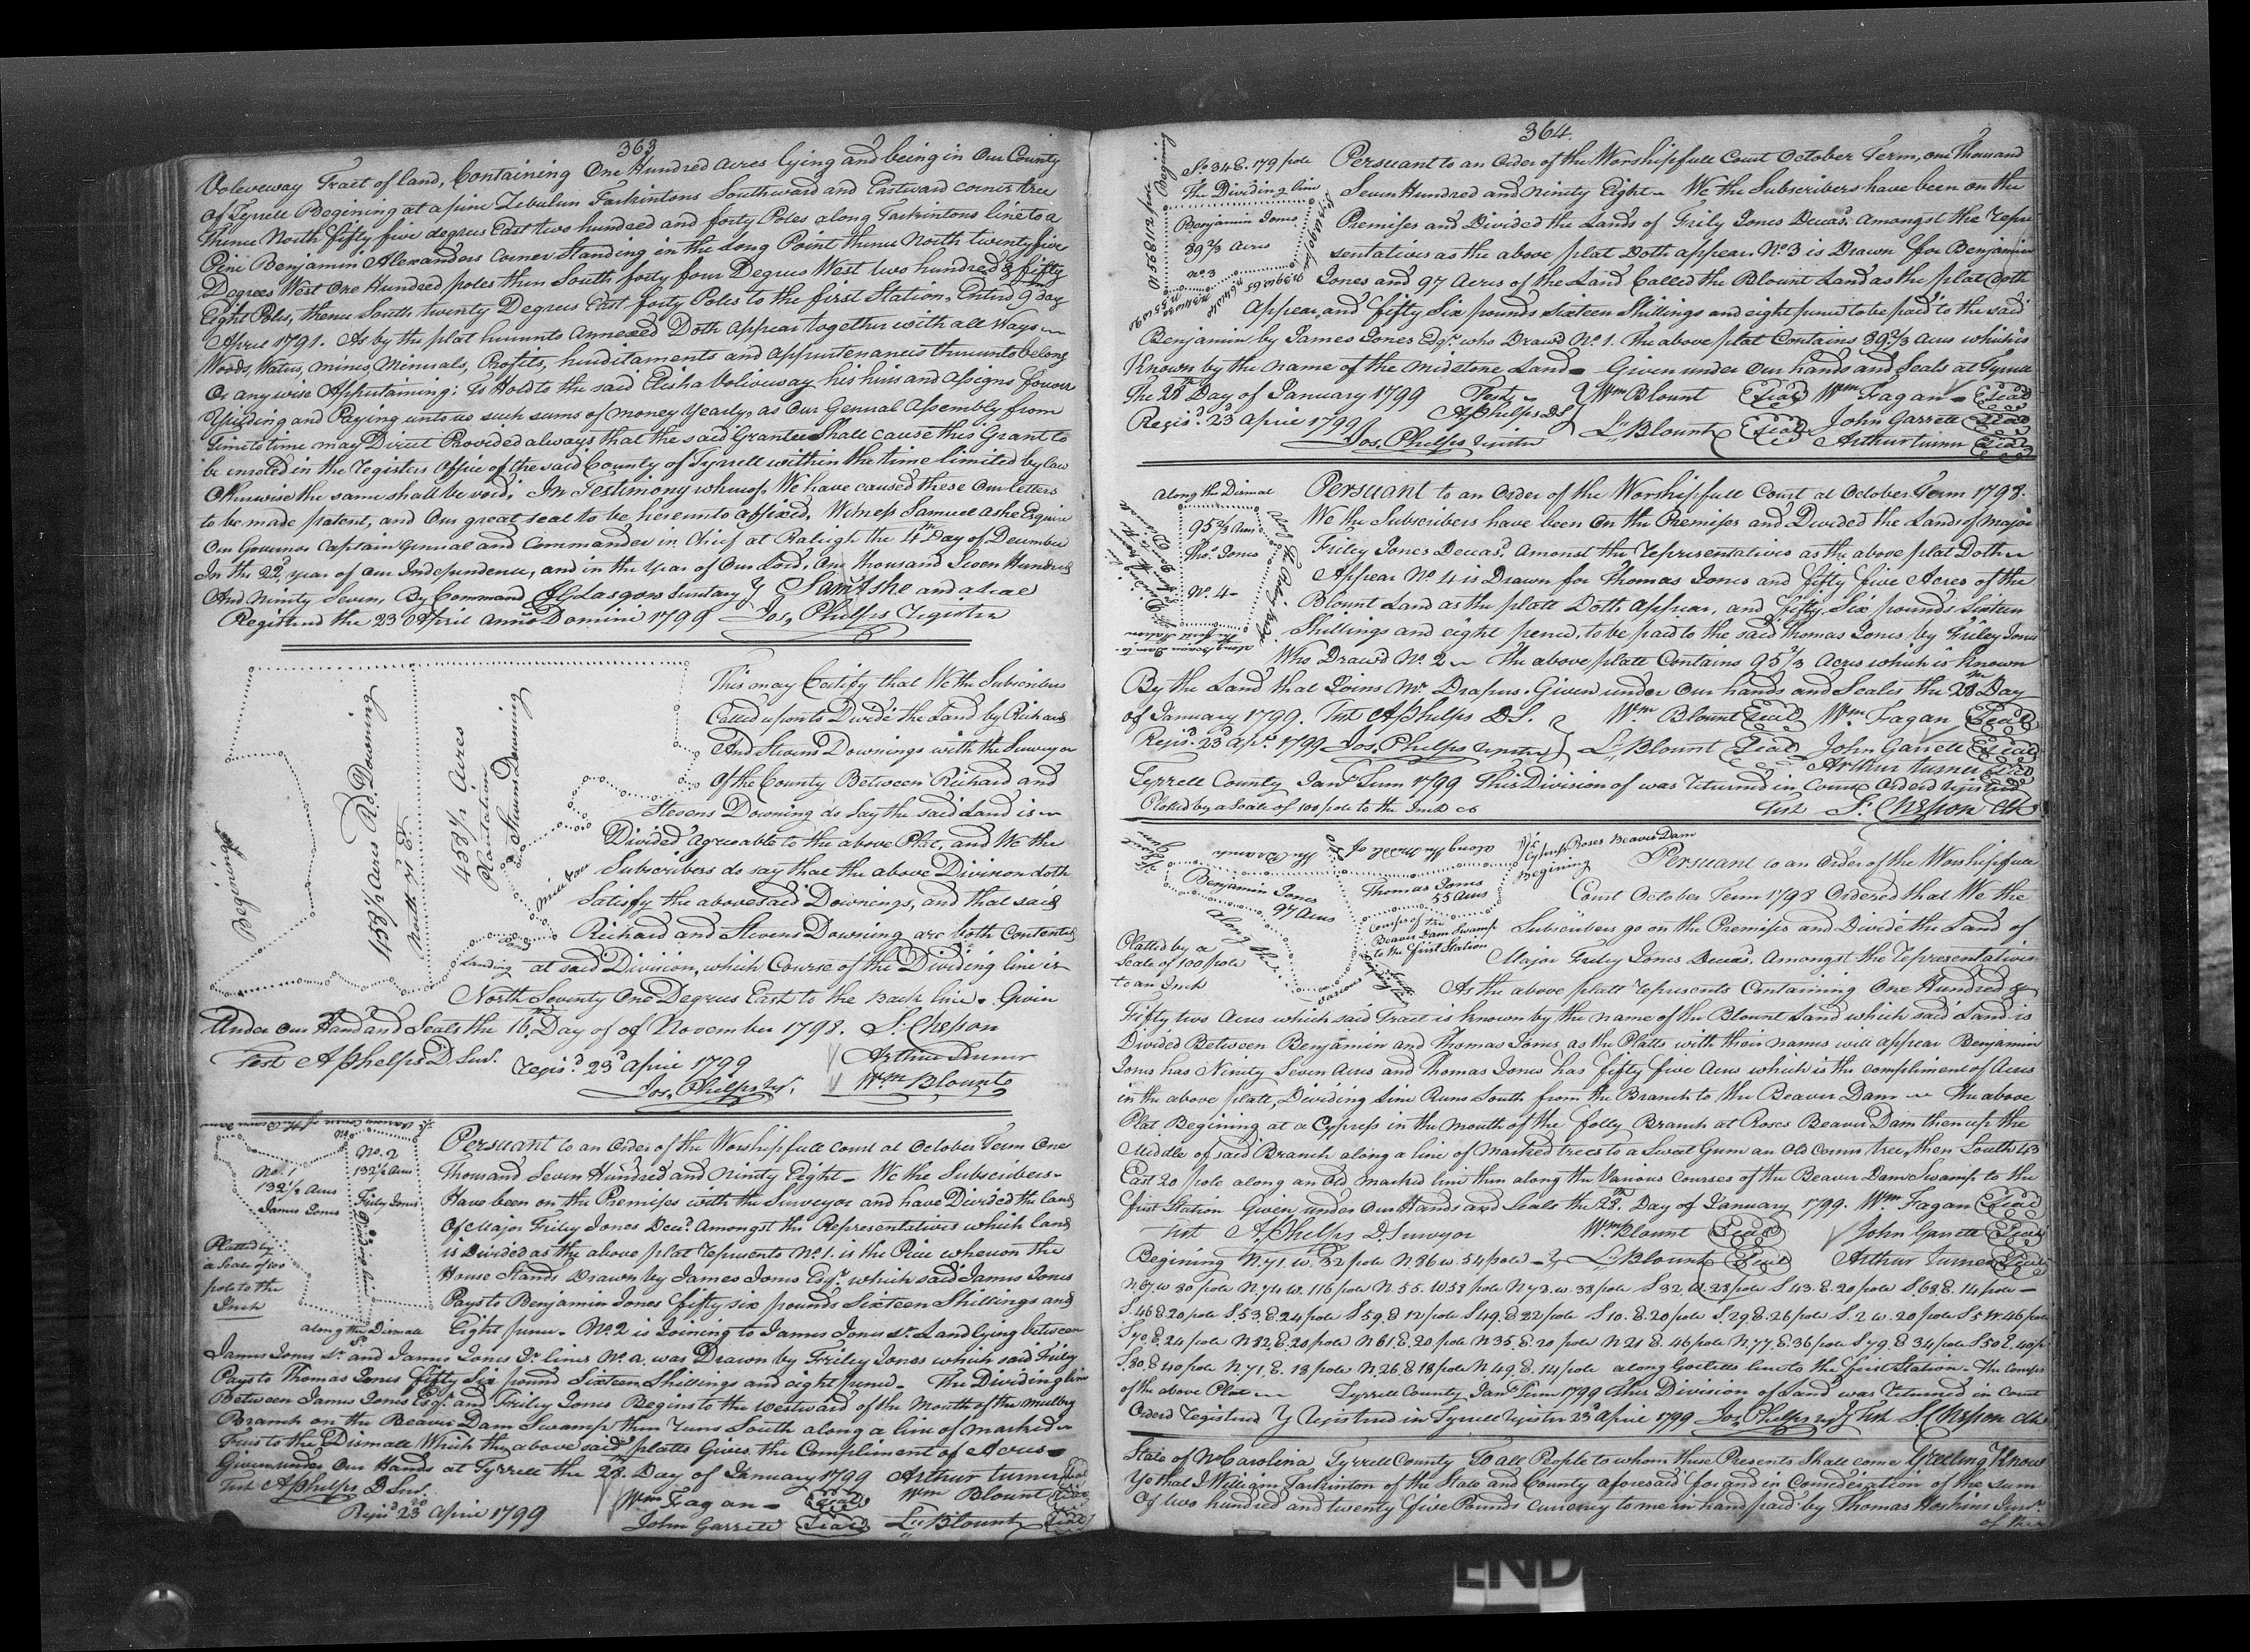 363
Voleveway Tract of land, Containing One Hundred acres lying and being in Our County
Of Tyrrell Begining at a pine Zebulun Tarkintons Southward and Eastward corner tree
thence North fifty five degrees East two hundred and forty Poles along Tarkintons line to a
Pine Benjamin Alexanders Corner Standing in the Long Point thence North twenty five
Degrees West One Hundred poles then South forty four Degrees West two hundred & fifty
Eight Poles, thence South twenty Degrees East forty Poles to the first Station, Entered 9th day
April 1791. As by the plat hereunto Annexed Doth Appear together with all Ways
Woods, Waters, mines, Minerals, Profits, herditaments and Appurtenances thereunto belong
Or any wise Appertaining: To Hold to the said Elisha Voliveway his heirs and Assigns forever
Yeilding and Paying unto us such sums of money Yearly, as Our General Assembly from
time to time may Direct Provided always that the said Grantee Shall cause this Grant to
be enroled in the Registers Office of the said County of Tyrrell within the time limited by law
Otherwise the same shall be void. In Testimony whereof, We have caused these Our letters
to be made patent, and Our great seal to be hereunto affixed. Witness Samuel Ashe Esquire
Our Governor Captain General and Commander in Chief at Raleigh the 4th Day of December
In the 22d year of our Independence, and in the Year of Our Lord, One thousand Seven Hundred
And Ninety Seven, By Command J Glasgow Secretary } Saml Ashe and a Seal
Registerd the 23 April Anno Domini 1799 Jos, Phelps Register
Begininge
158 1/2 Acres Rd. Downing
North 71 E.
458 1/2 Acres
Plantation
Steven Downing
Mile tree
Landing
This may Certify that We the Subscribers
Called upon to Divide the Land by Richard
And Stevens Downings with the Surveyor
Of the County Between Richard and
Stevens Downing do Say the said Land is
Divided agreeable to the above Plat, and We the
Subscribers do say that the above Division doth
Satisfy the abovesaid Downings, and that said
Richard and Stevens Downing are both Contented
at said Division, which Course of the Dividing line is
North Seventy One Degrees East to the back line. Given
Under Our Hand and Seals the 16th Day of of November 1798. S. Chesson
Test A Phelps D Sur. Regisd 23d April 1799 Arthur Turner
Jos, Phelps Regr. Wm Blount
No. 1
132 1/2 Acres
James Jones
No. 2
132 1/2 Acres
Friley Jones
Dividing line
Platted by
a Scale of 100
pole to the
Inch
along the Dismale
Persuant to an Order of the Worshipfull Court at October Term One
Thousand Seven Hundred and Ninety Eight - We the Subscribers
Have been on the Premises with the Surveyor and have Divided the land
Of Major Friley Jones Decd. Amongst the Representatives which land
is Divided as the above plat Represents No. 1. is the Piece whereon the
House Stands Drawn by James Jones Esqr. which said James Jones
Pays to Benjamin Jones fifty six pounds Sixteen Shillings and
Eight pence. No. 2 is Joining to James Jones Sr. Land lying between
James Jones Sr. and James Jones Jr. lines No. 2. was Drawn by Friley Jones which said Friley
Pays to Thomas Jones fifty Six pound Sixteen Shillings and eight pence. The Dividing line
Between James Jones Esqr. and Friley Jones Begins to the westward of the Mouth of the mulbry
Branch on the Beaver Dam Swamp then Runs South along a line of marked
Trees to the Dismall Which the above said platts Gives the Compliment of Acres
Given under Our Hands at Tyrrell the 28th. Day of January 1799 Arthur turner Seal
Test A Phelps D Sur. Wm Fagan Seal Wm Blount Seal
Regisd 23d April 1799 John Garrett Seal L. Blount Seal
364.
Begining
So. 34 E. 179 pole
The Dividing line
Benjamin Jones
89 2/3 Acres
No. 3
Persuant to an Order of the Worshipfull Court October Term, one thousand
Seven Hundred and Ninety Eight - We the Subscribers have been on the
Premises and Divided the Lands of Frily Jones Decasd. Amongst the Repre
sentatives as the above plat Doth appear No. 3 is Drawn for Benjamin
Jones and 97 Acres of the Land Called the Blount Land as the plat Doth
Appear, and fifty Six pounds sixteen Shillings and eight pence to be paid to the said
Benjamin by James Jones Esqr. who Drawd No. 1. The above plat Contains 89 2/3 Acres which is
Known by the name of the Midstone Land - Given under Our hands and Seals at Tyrrell
The 28th Day of January 1799 Test } Wm Blount Seal Wm Fagan Seal
Regisd. 23d April 1799 A Phelps D S } L. Blount Seal John Garrett Seal
Jos, Phelps Register Arthur turner Seal
along the Dismal
95 2/3 Acres
Thos. Jones
No. 4
Persuant to an Order of the Worshipfull Court at October Term 1798.
We the Subscribers have been On the Premises and Divided the Lands of Major
Friley Jones Decasd. Amonst the Representatives as the above plat Doth
Appear No. 4 is Drawn for Thomas Jones and fifty five Acres of the
Blount Land as the platt Doth Appear, and fifty Six pounds Sixteen
Shillings and eight pence, to be paid to the said Thomas Jones by Friley Jones
Who Drawd No. 2 The above platt Contains 95 2/3 Acres which is Known
By the Land that Joins Mr. Drapers. Given under Our hands and Seales the 28th Day
of January 1799. Test A Phelps D. S. } Wm Blount Seal Wm. Fagan Seal
Regisd. 23d Apl. 1799 Jos, Phelps Register } L. Blount Seal John Garrett Seal
Arthur turner Seal
Tyrrell County Jany Term 1799 This Division of was Returned in Court Orderd registerd
Plotted by a Scale of 100 pole to the Inch Test S. Chesson Clk
Along the Middle of The Branch
Cypress Roses Beaver Dam
Begining
Benjamin Jones
97 Acres
Thomas Jones
55 Acres
Along the
various
Courses of the
Beaver Dam Swamp
to the first Station
Platted by a
Scale of 100 pole
to an Inch
Persuant to an Order of the Worshipfull
Court October Term 1798 Ordered that We the
Subscribers go on the Premises and Divide the Land of
Major Friley Jones Decasd. Amongst the Representatives
As the above platt represents Containing One Hundred &
Fifty two Acres which said Tract is known by the name of the Blount Land which said Land is
Divided Between Benjamin and Thomas Jones as the Platts with their names will appear Benjamin
Jones has Ninety Seven Acres and Thomas Jones has fifty five Acres which is the compliment of Acres
in the above platt, Dividing Line Runs South from the Branch to the Beaver Dam The above
Plat Begining at a Cypress in the Mouth of the folly Branch at Roses Beaver Dam then up the
Middle of said Branch along a line of Marked trees to a Sweet Gum an Old Corner tree, then South 43
East 20 pole along an Old marked line then along the Various Courses of the Beaver Dam Swamp to the
first Station Given under Our Hands and Seals the 28th. Day of January 1799. Wm. Fagan Seal
Test A Phelps D. Surveyor Wm Blount Seal John Garrett Seal
Begining N. 71. W. 32 pole N. 86 W. 54 pole } L. Blount Seal Arthur Turner Seal
N. 67. W 30 pole N. 74 W. 116 pole N. 55. W 58 pole N 73. W. 38 pole S 32. W. 28 pole S 43. E. 20 pole S. 68. E. 14 pole
S. 46 E 20 pole S. 53. E. 24 pole S 59. E 12 pole S 49. E 22 pole S 10. E. 20 pole S. 29. E. 26 pole S. 2 W. 20 pole S 5 W. 46 pole
S 70. E. 24 pole N 82. E. 20 pole N 61. E. 20 pole N 35. E. 20 pole N 21 E. 46 pole N. 77. E. 36 pole S 79. E 34 pole S 50 E. 40 p
S. 80. E 40 pole N. 71. E. 18 pole N. 26. E 18 pole N. 49. E. 14 pole along line to the first Station. The Courses
of the above Plat Tyrrell County Jany Term 1799 this Division of Land was Returned in Court
Orderd Registerd } Registerd in Tyrrell Register 23d April 1799 Jos, Phelps Regr } Test S. Chesson Clk
State of No Carolina Tyrrell County To all People to whom these Presents Shall come Greeting Know
Ye that I William Tarkinton of the State and County aforesaid for and in Consideration of the sum
Of two hundred and twenty five Pounds currency to me in hand paid by Thomas Hoskins Junr.
of the
END